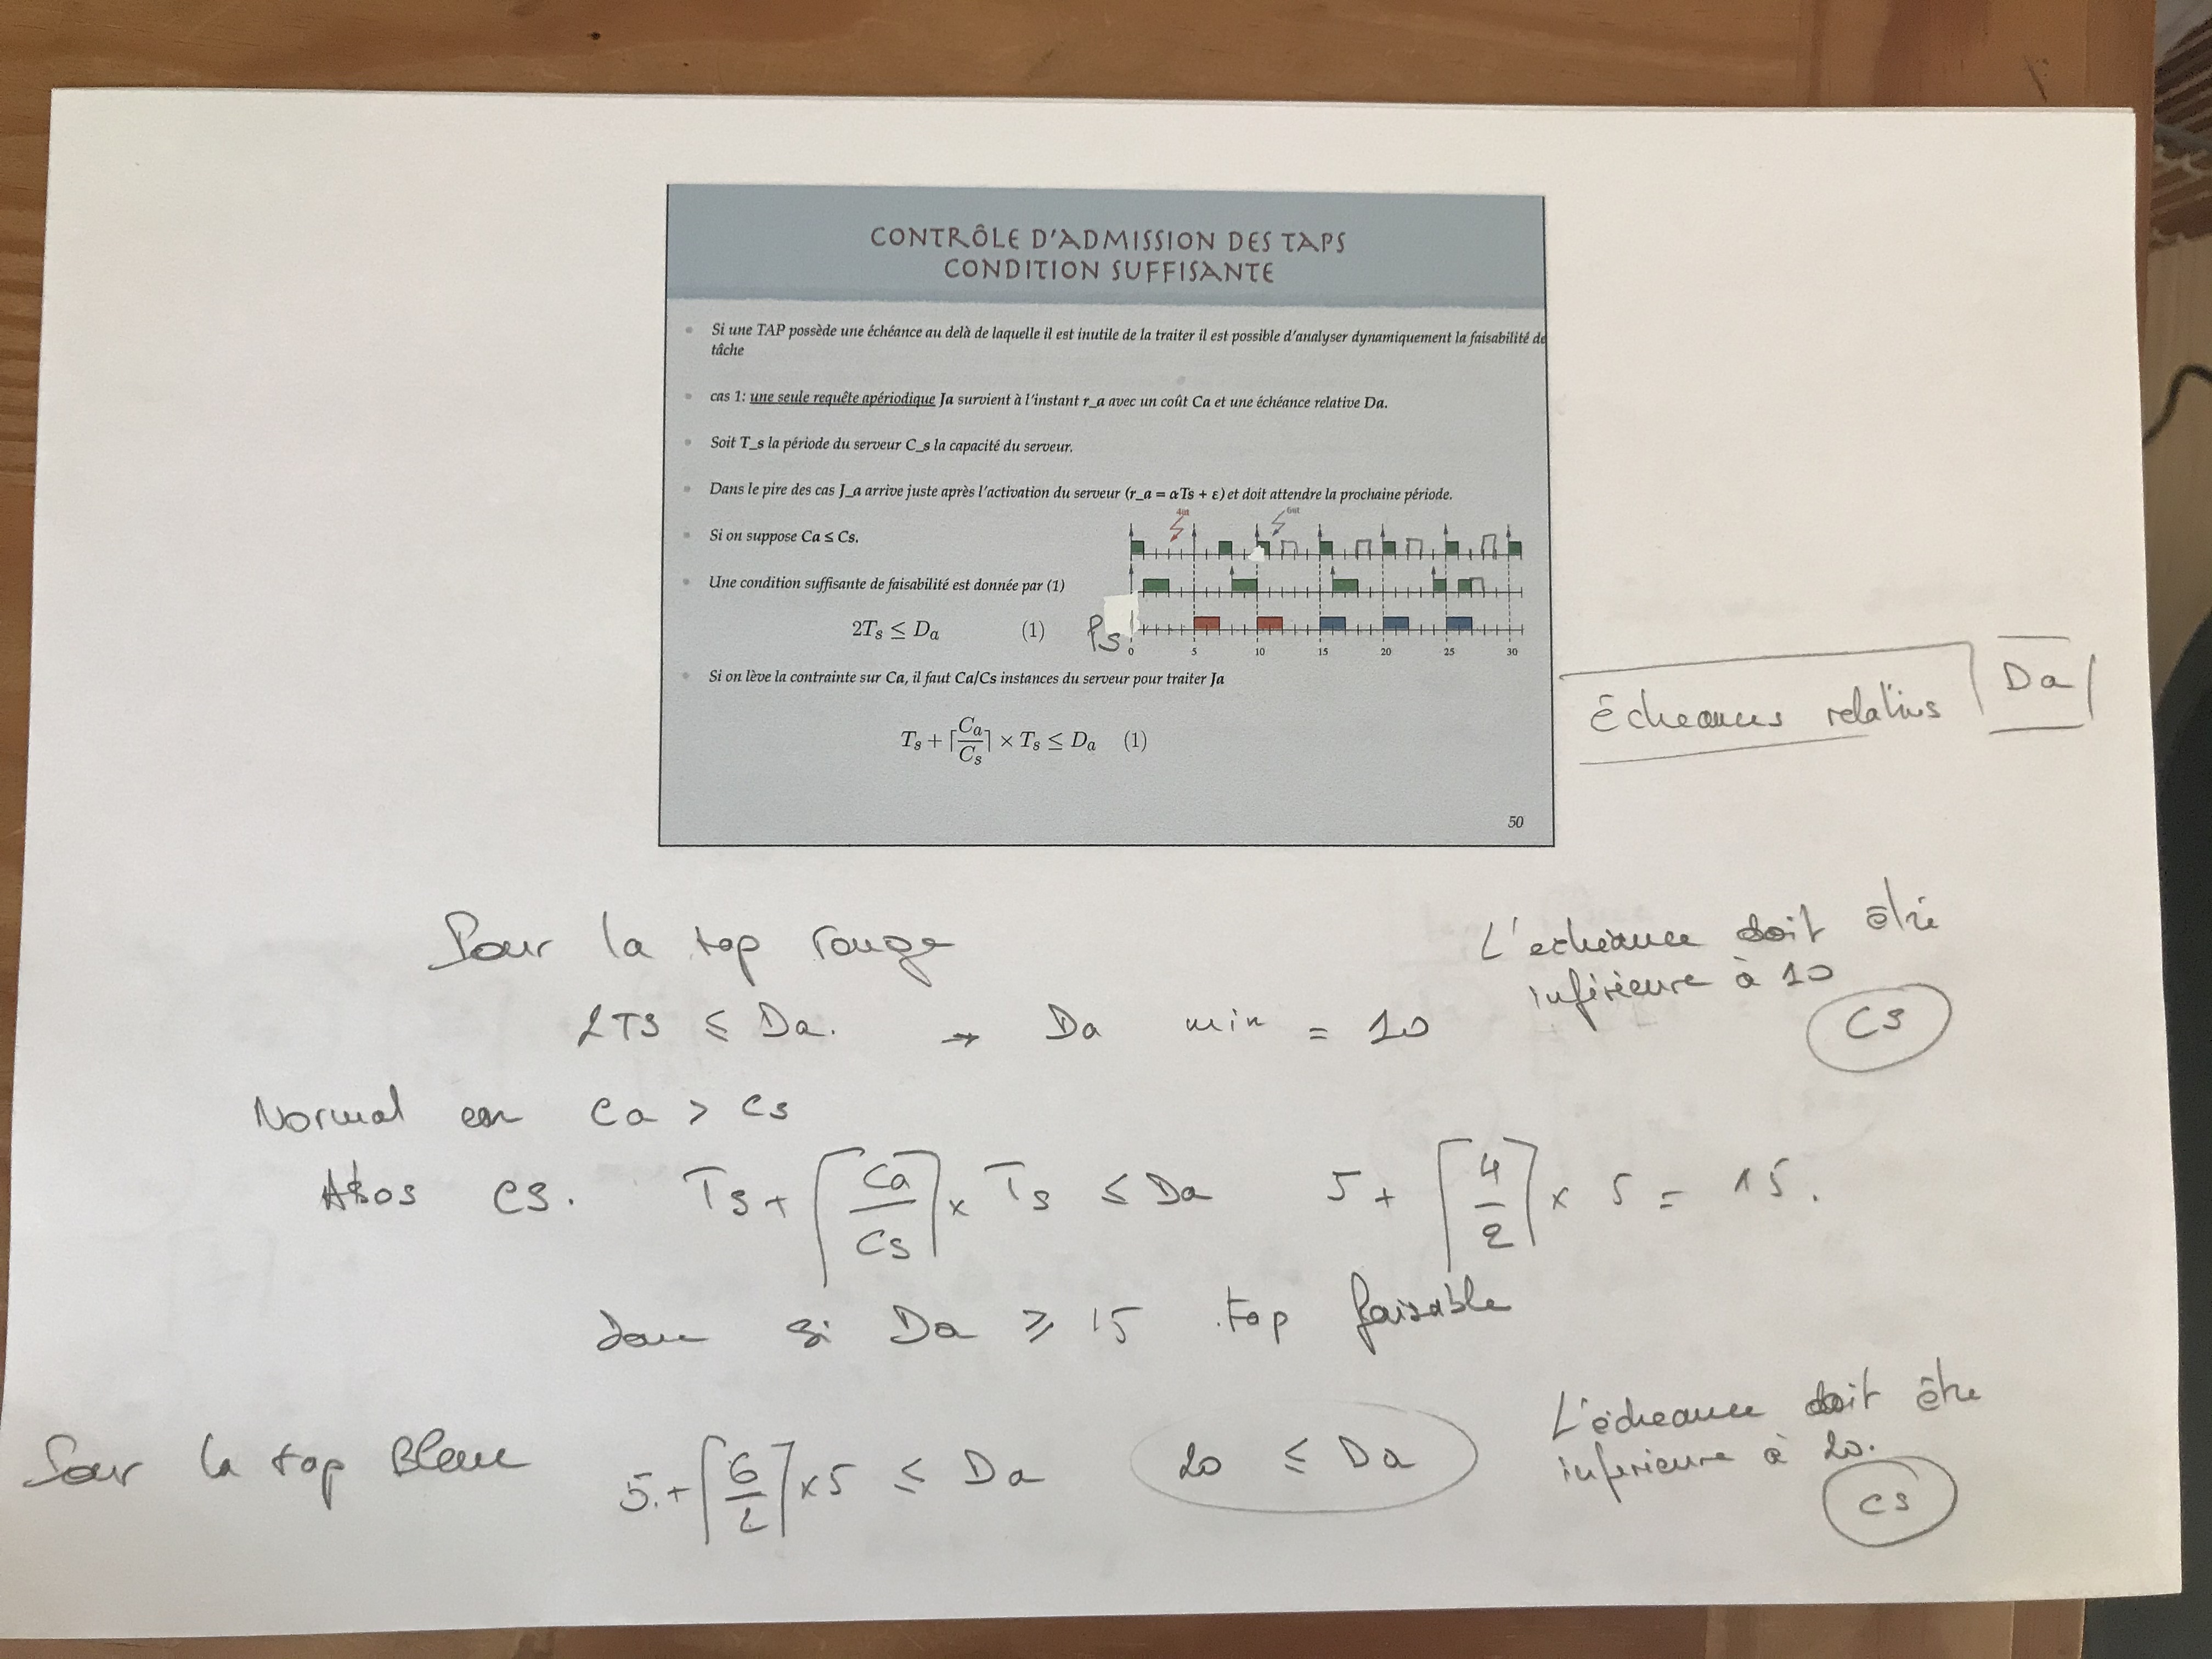 CONTRÔLE D'ADMISSION DES TAPS
CONDITION SUFFISANTE
Si une TAP possède une échéance au delà de laquelle il est inutile de la traiter il est possible d'analyser dynamiquement la faisabilité de
tâche
cas 1: une seule requête apériodique Ja survient à l'instant r_a avec un coût Ca et une échéance relative Da.
Soit T_s la période du serveur C_s la capacité du serveur.
Dans le pire des cas J_a arrive juste après l'activation du serveur (r_a = αTs + ε) et doit attendre la prochaine période.
4ut 6ut
Si on suppose Ca ≤ Cs.
Une condition suffisante de faisabilité est donnée par (1)
2Ts ≤ Da (1)
Ps
0 5 10 15 20 25 30
Si on lève la contrainte sur Ca, il faut Ca/Cs instances du serveur pour traiter Ja
Ts + ⌈Ca/Cs⌉ × Ts ≤ Da (1)
50
Échéances relatives Da
Pour la tap rouge
L'echéance doit être
inférieure à 10
2TS ≤ Da. → Da min = 10
CS
Normal car Ca > Cs
CS. Ts + ⌈Ca/Cs⌉ × Ts ≤ Da 5 + ⌈4/2⌉ × 5 = 15.
donc si Da ≥ 15 tap faisable
Pour la tap Bleue 5 + ⌈6/2⌉ × 5 ≤ Da 20 ≤ Da
L'écheance doit être
inferieure à 20.
CS